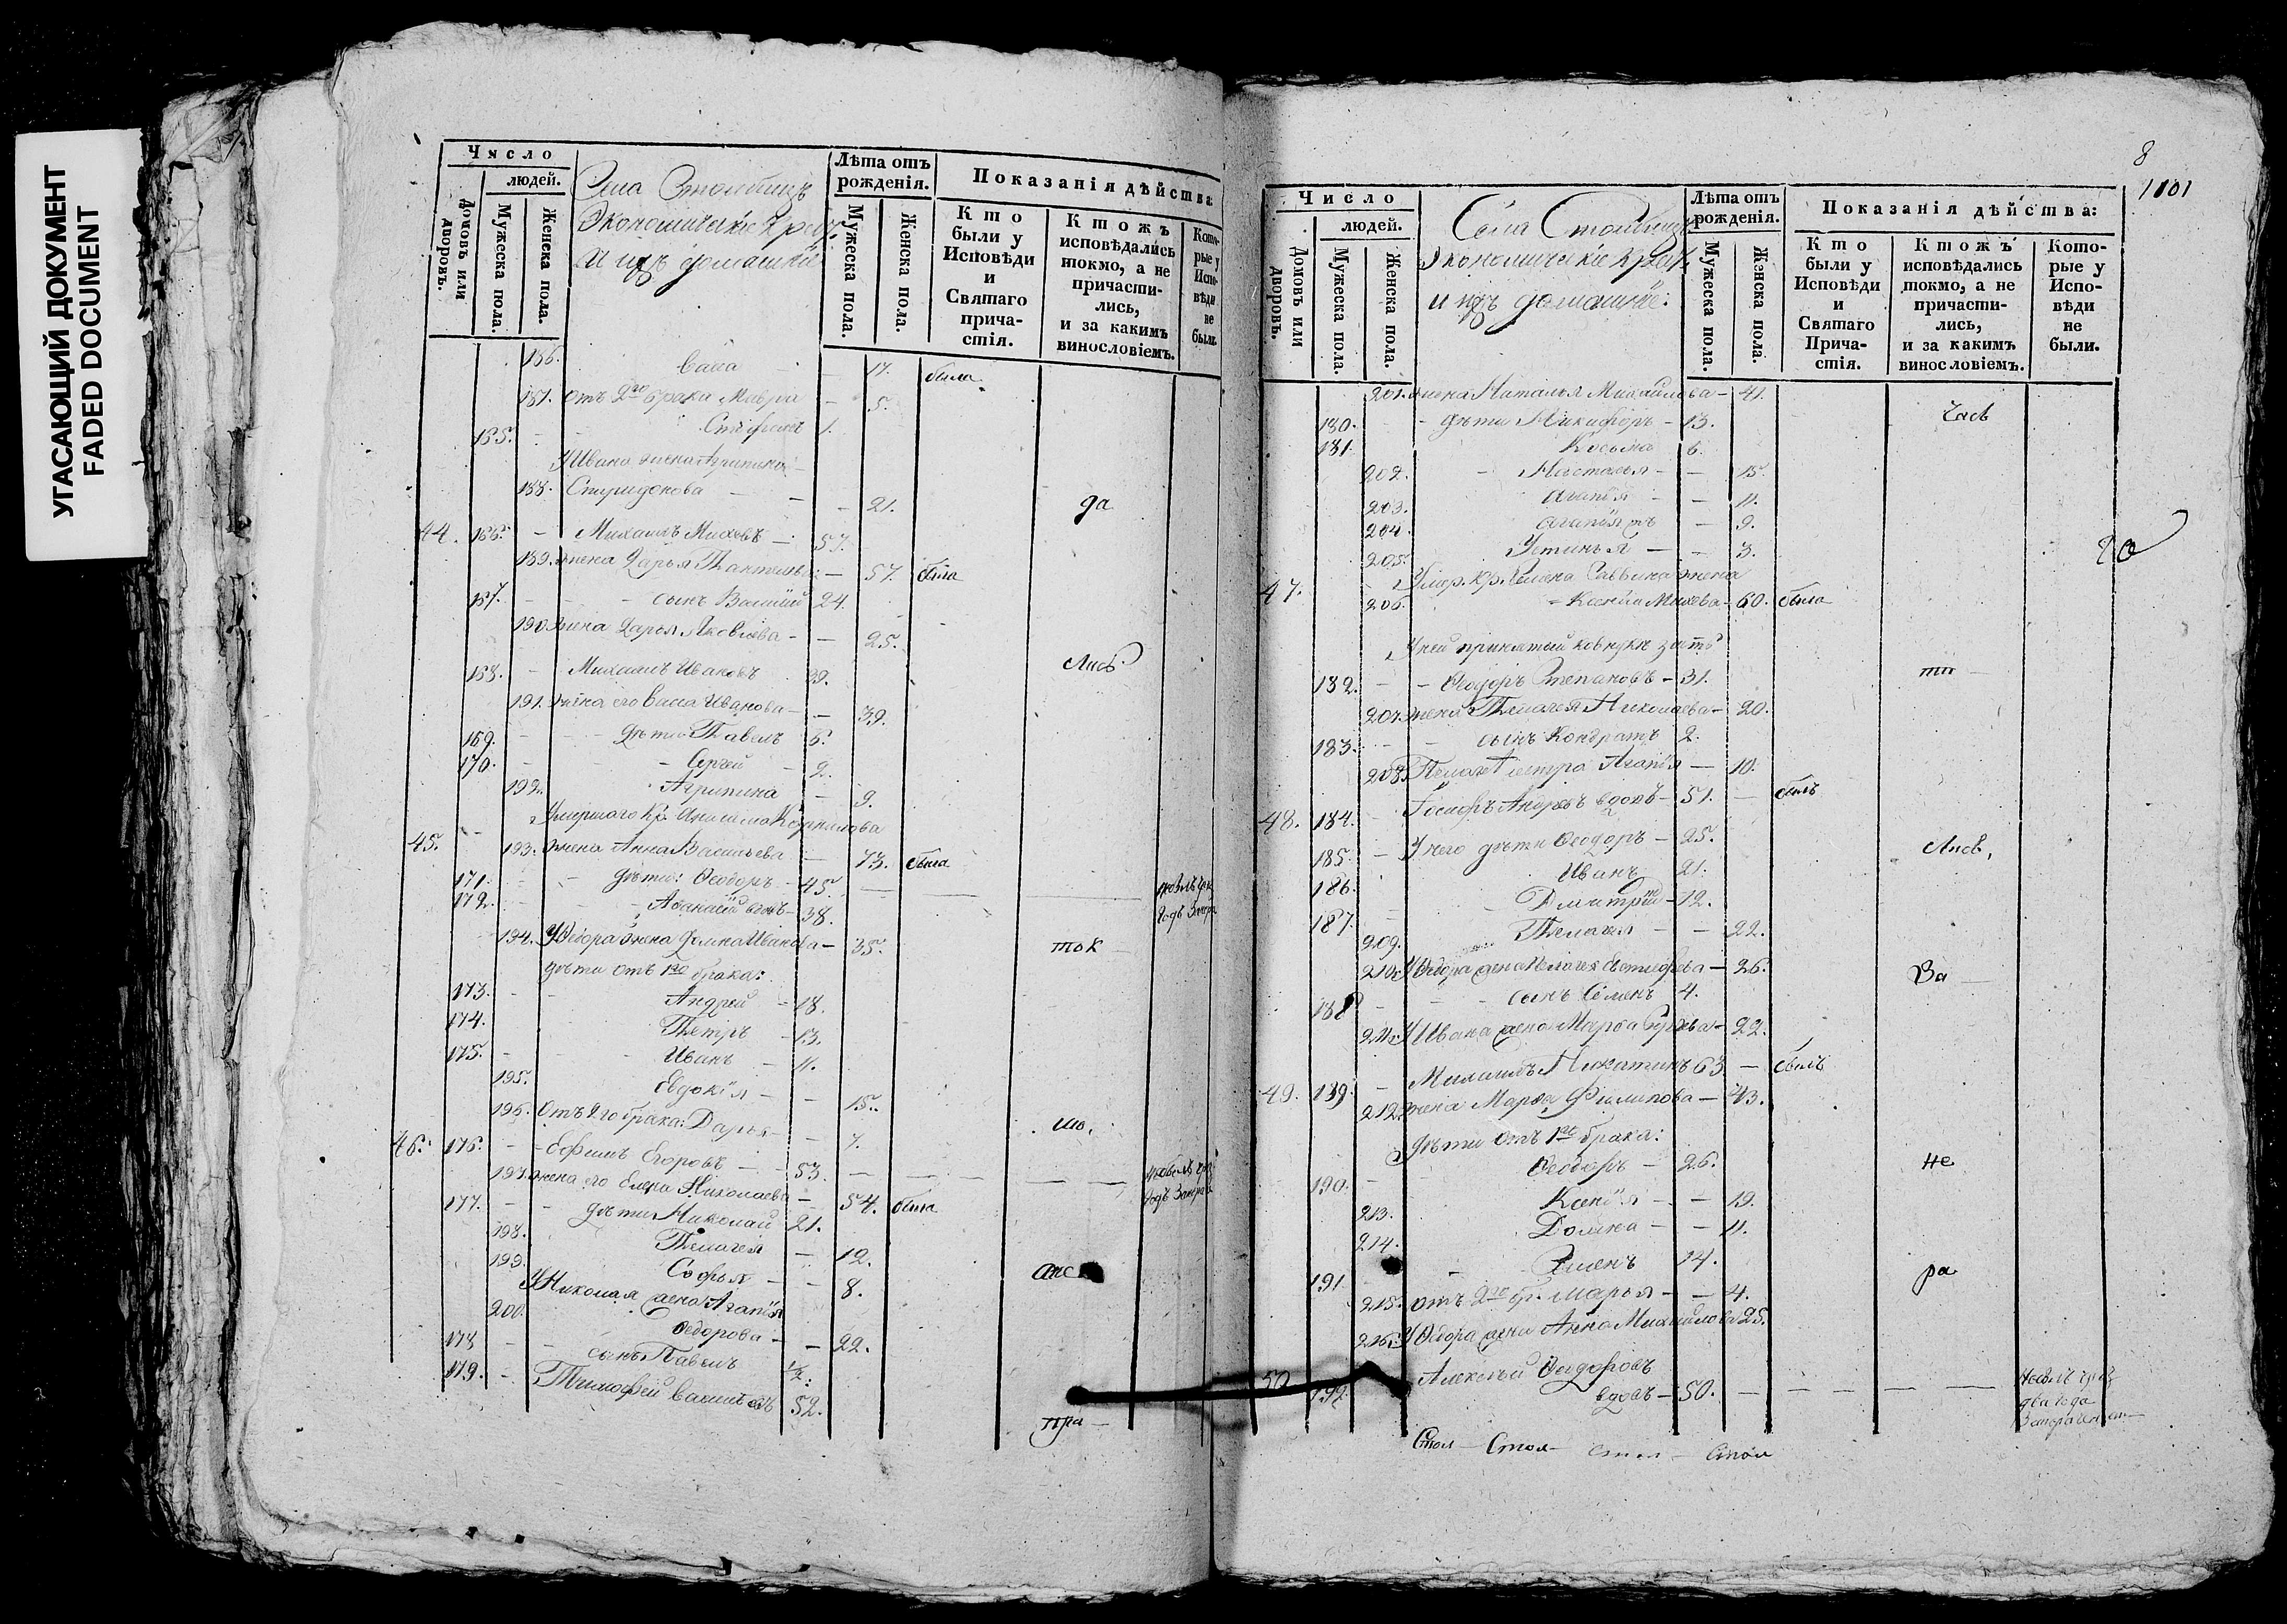 УГАСАЮЩИЙ ДОКУМЕНТ
FADED DOCUMENT
Число
людей.
Домовъ или дворовъ.
Мужеска пола.
Женска пола.
Села Столбищъ
Экономическіе крест.
и ихъ домашніе
Лѣта отъ рожденія.
Мужеска пола.
Женска пола.
Показанія дѣйства
Кто были у Исповѣди и Святаго причастія.
Ктожъ исповѣдались токмо, а не причастились, и за какимъ винословіемъ.
Которые у Исповѣди не были.
186. Васса — 17. была
187. отъ 2го брака Мавра — 5.
165. Стефанъ 1.
У Ивана жена Агрипина
188. Спиридонова — 21. да
44. 166. Михаилъ Михеевъ — 57.
189. жена Дарья Пантелѣева — 57. была
167. сынъ Василій 24.
190. жена Дарья Яковлева — 25.
Лись
168. Михаилъ Ивановъ 39.
191. жена его Васса Иванова — 39.
169. дѣти Павелъ 5.
170. Сергей 2.
192. Агрипина — 9.
Умершаго Кр. Анисима Корнилова
45. 193. жена Анна Васильева — 73. была
171. дѣти: Ѳеодоръ 45
172. Аѳанасій вдовъ 38.
194. У Ѳедора жена Домна Иванова — 35. ток
дѣти отъ 1го брака:
173. Андрей 18.
174. Петръ 13.
175. Иванъ 11.
195. Евдокія — 15.
196. Отъ 2го брака: Дарья — 7. мо.
46. 176. Ефимъ Егоровъ — 53.
197. жена его Елена Николаева — 54. была
177. дѣти Николай 21.
198. Пелагея — 12.
199. Софья — 8.
У Николая жена Агапія
200. Ѳедорова — 22.
178. сынъ Павелъ ½.
179. Тимофей Васильевъ 52.
при
8
1101
Число
людей.
Домовъ или дворовъ.
Мужеска пола.
Женска пола.
Села Столбищъ
Экономическіе крест.
и ихъ домашніе:
Лѣта отъ рожденія.
Мужеска пола.
Женска пола.
Показанія дѣйства:
Кто были у Исповѣди и Святаго Причастія.
Ктожъ исповѣдались токмо, а не причастились, и за какимъ винословіемъ.
Которые у Исповѣди не были.
201. жена Наталья Михайлова — 41. час
180. дѣти Никифоръ 13.
181. Косьма 6.
202. Настасья — 15.
203. Агапія — 11.
204. Агапія — 9.
205. Устинья — 3.
Умер. кр. Семена Саввина жена
47. 206. Ксенія Михеева — 60. была
У ней принятый ко внукѣ зять
182. Ѳеодоръ Степановъ — 31. ти
207. жена Пелагея Николаева — 20.
183. сынъ Кондратъ 2.
208. Агапія — 10.
48. 184. Іосифъ Андреевъ вдовъ — 51. былъ
185. У него дѣти Ѳеодоръ — 25. Лись,
186. Иванъ 21.
187. Дмитрій 12.
209. Пелагея — 22.
210. У Ѳедора жена Пелагея — 26. За
188. сынъ Семенъ 4.
211. У Ивана жена Марѳа — 22.
49. 189. Михаилъ Никитинъ 63 — былъ
212. жена Марѳа Филипова — 43.
дѣти отъ 1го брака:
190. Ѳеодоръ — 26. не
213. Ксенія — 19.
214. Домна — 11.
191. Семенъ 14. ра
215. отъ 2го бр. Марья — 4.
216. У Ѳедора жена Анна Михайлова 25.
50. 192. Алексѣй Ѳедоровъ
вдовъ — 50.
два года
Стол — Стол — Стол — Стол